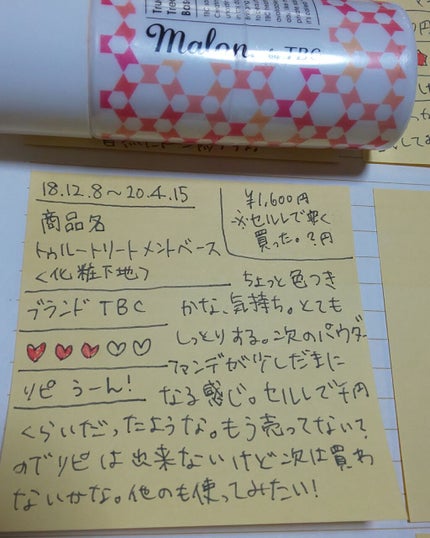 Malon
TBC
18.12.8〜20.4.15
商品名
トゥルートリートメントベース
<化粧下地>
¥1,600円
※セルレで安く
買った。?円
ブランド TBC
リピ うーん!
ちょっと色つき
かな、気持ち。とても
しっとりする。次のパウダー
ファンデが少しだまに
なる感じ。セルレで千円
くらいだったような。もう売ってない?
のでリピは出来ないけど次は買わ
ないかな。他のも使ってみたい!